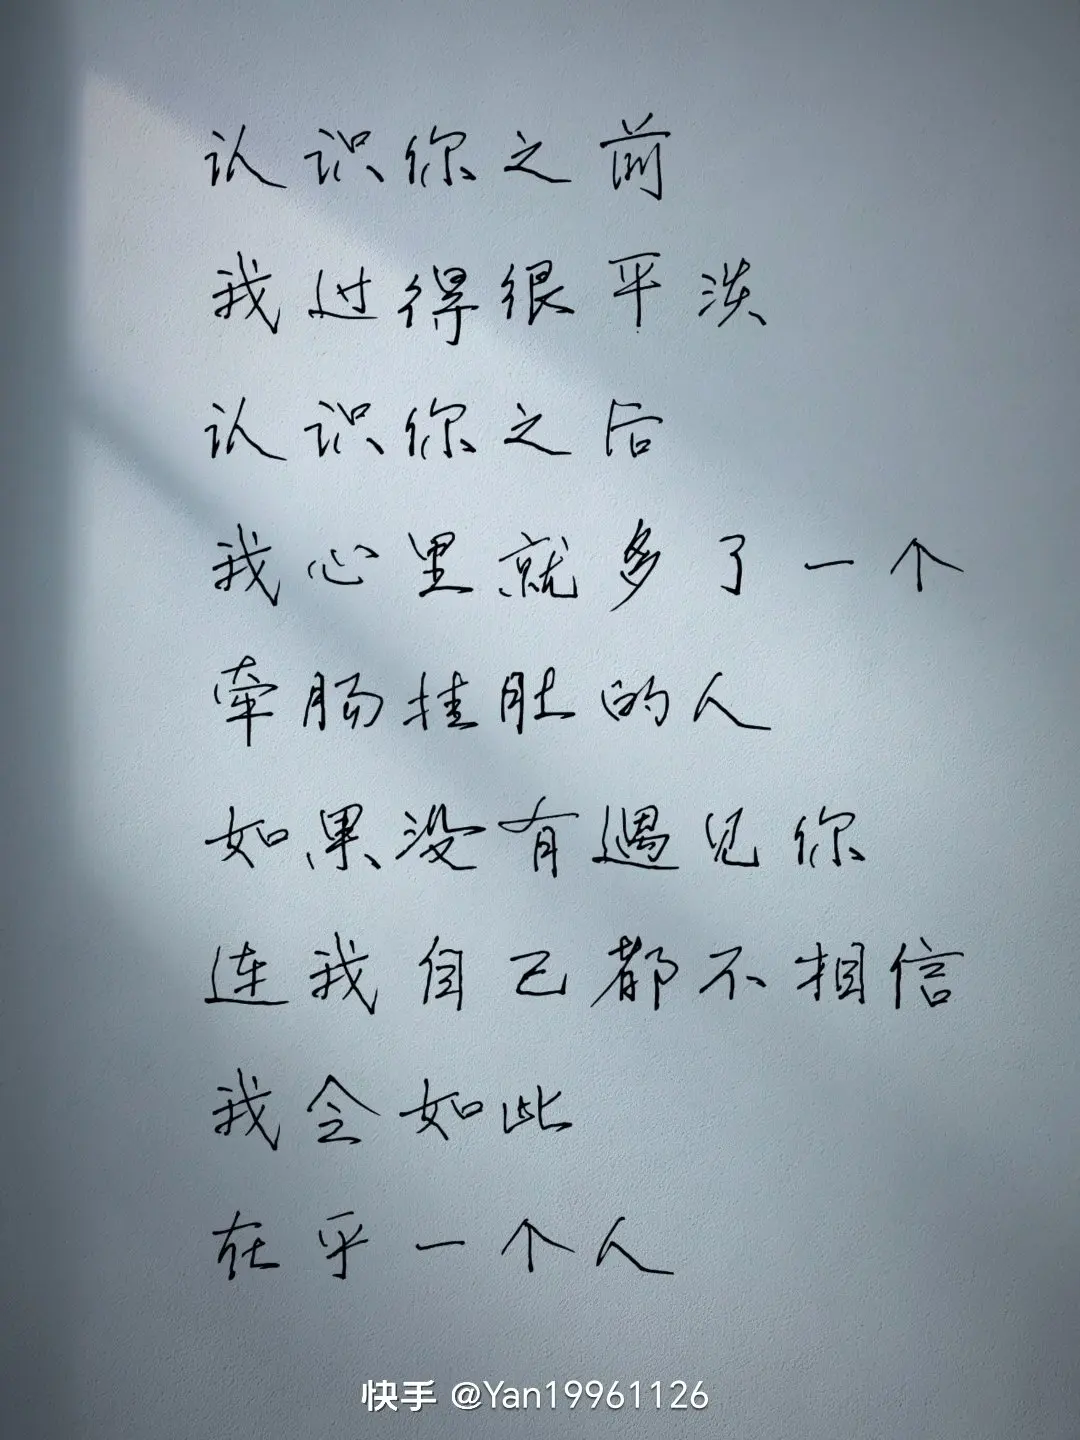 认识你之前
我过得很平淡
认识你之后
我心里就多了一个
牵肠挂肚的人
如果没有遇见你
连我自己都不相信
我会如此
在乎一个人
快手 @Yan19961126